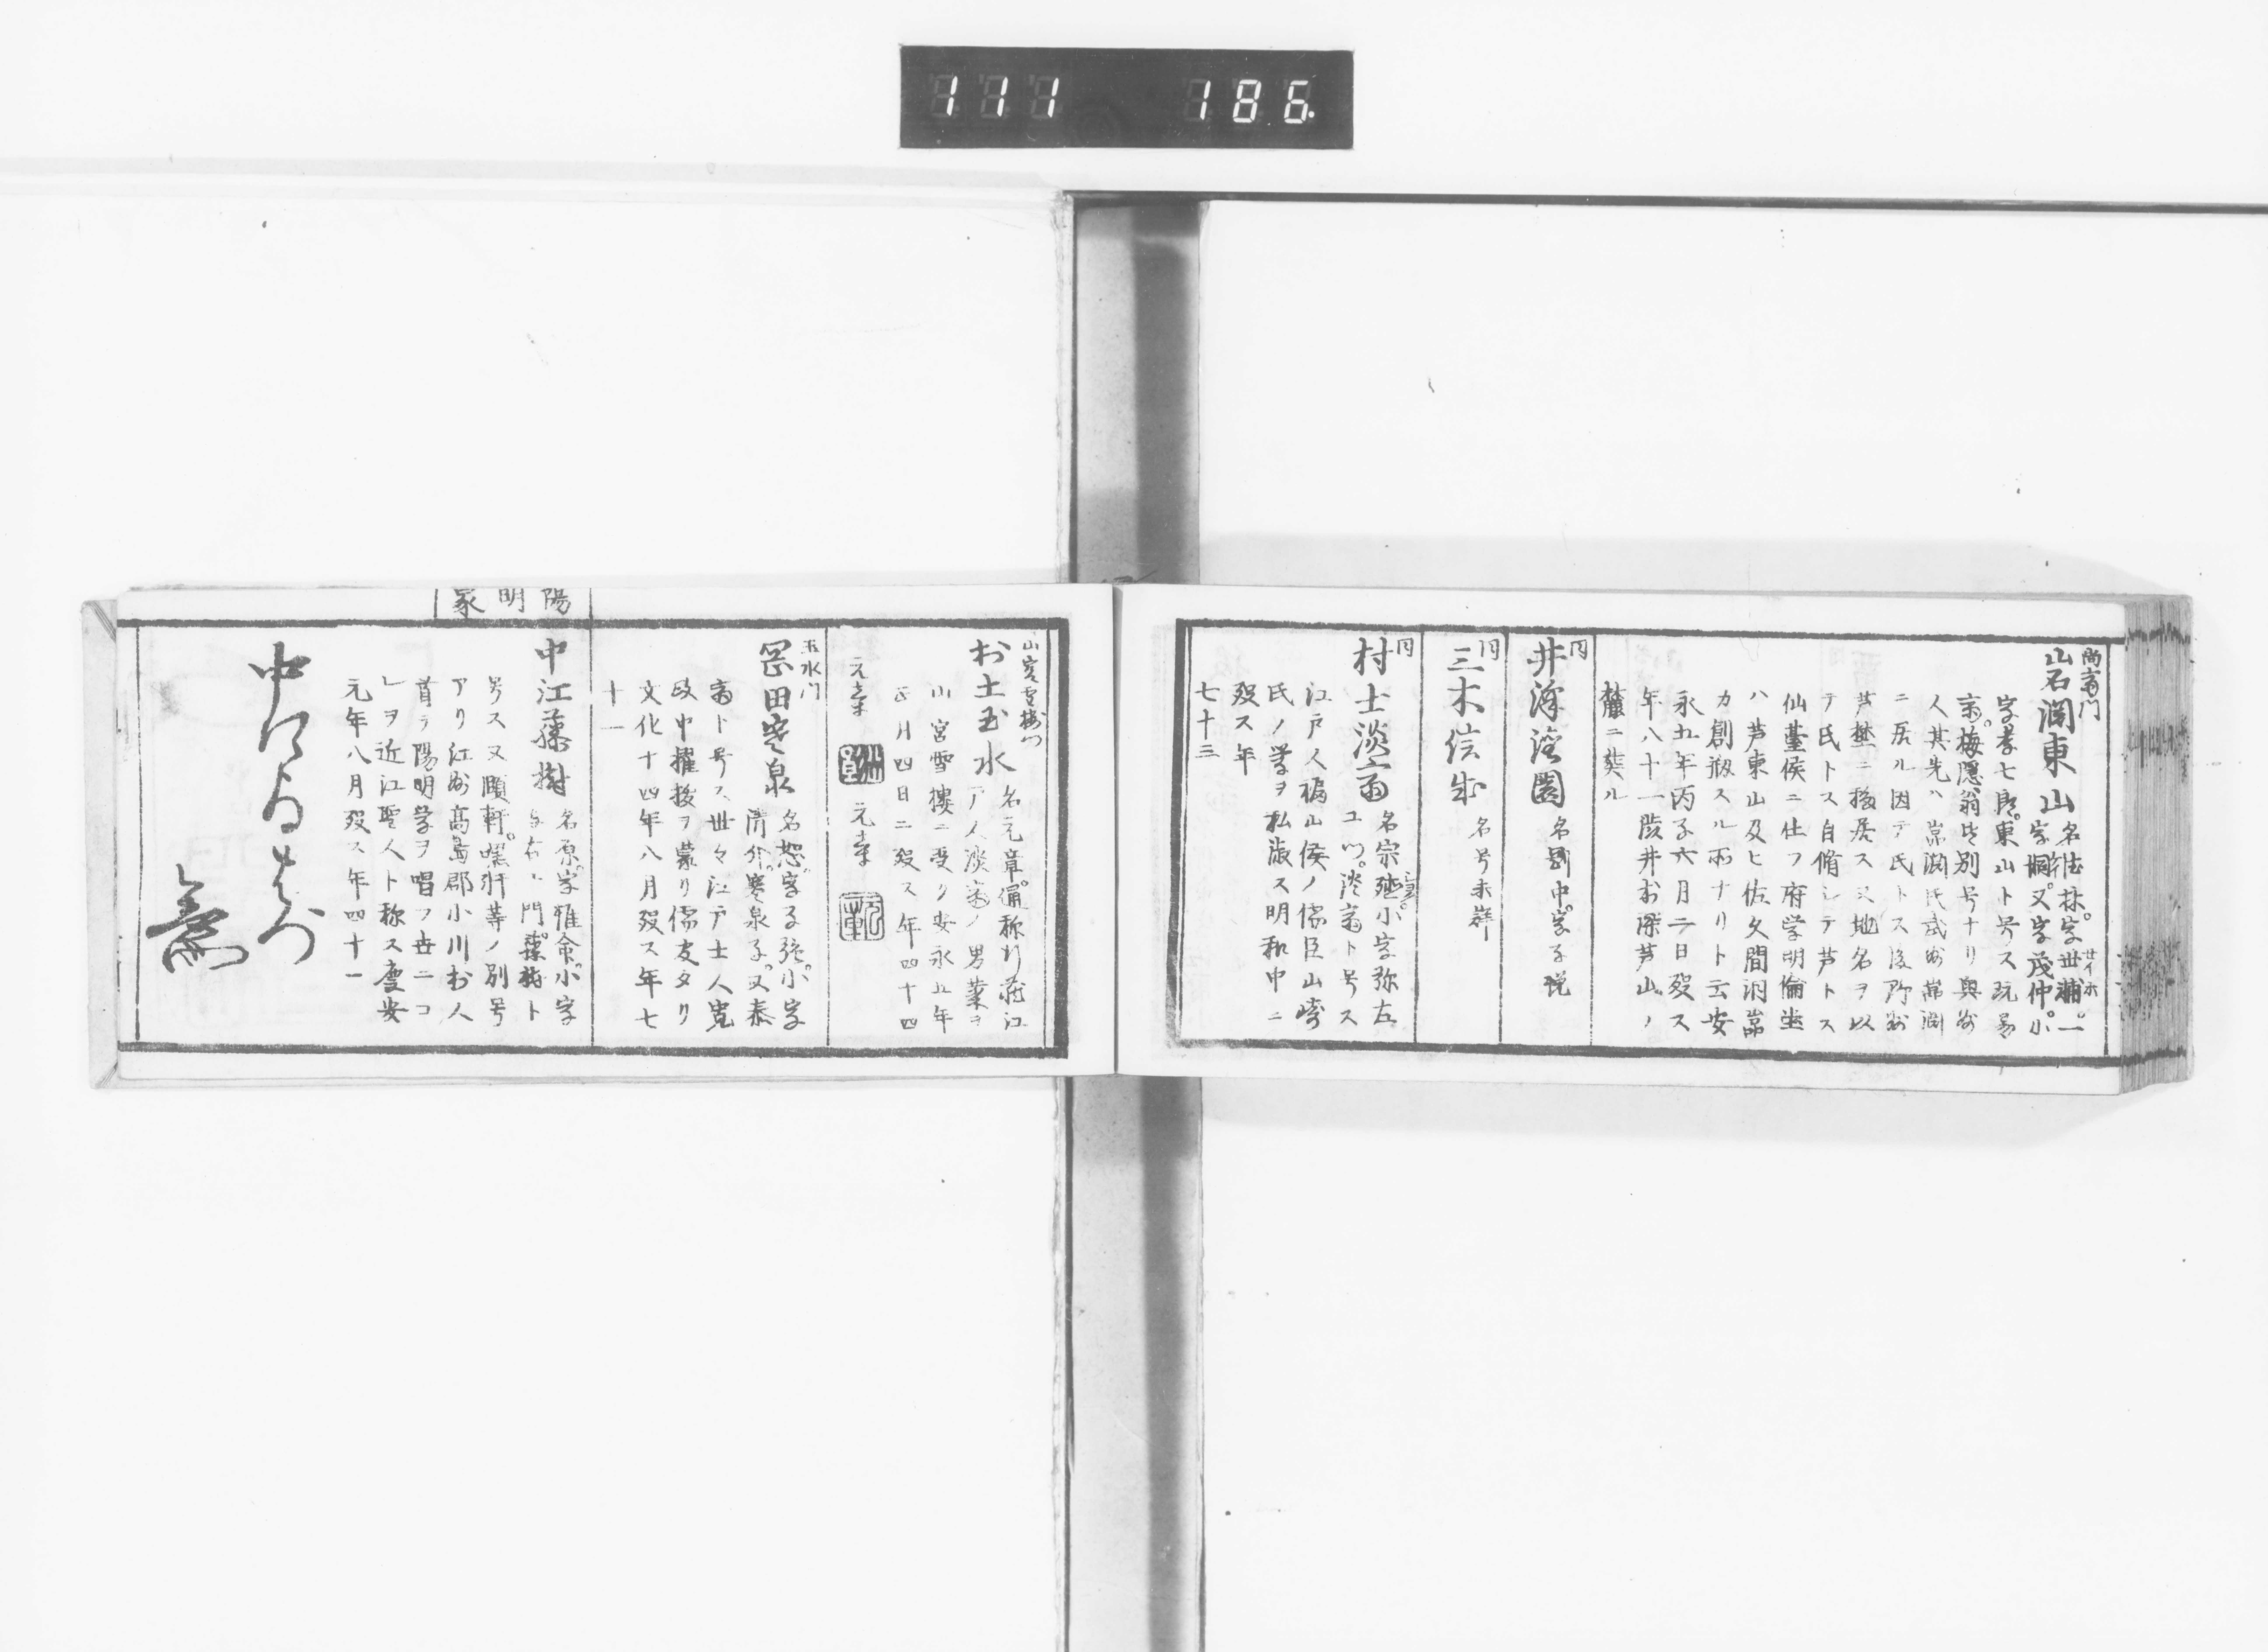 111 186
尚斎門
岩淵東山 名惟林。字世輔。一
字幹。又字茂仲。小
字孝七郎。東山ト号ス玩易
斎。梅隠翁皆別号ナリ奥州
人其先ハ岩淵氏武州岩淵
ニ居ル因テ氏トス後野州
芦埜ニ移居ス又地名ヲ以
テ氏トス自脩シテ芦トス
仙䑓侯ニ仕フ府学明倫堂
ハ芦東山及ヒ佐久間洞岩
カ創
スル所ナリト云安
永五年丙子六月二日歿ス
年八十一陵井村深芦山ノ
麓ニ葬ル
同
井澤澹園 名剛中。字子悦
同
三木信成 名号未詳
同
村士淡斎 名宗
。小字弥左
ヱ門。淡斎ト号ス
江戸人福山侯ノ儒臣山崎
氏ノ学ヲ私淑ス明和中ニ
歿ス年
七十三
山宮雪樓門
村士玉水 名元章。通称行蔵江
戸人淡斎ノ男業ヲ
山宮雪樓ニ受ク安永五年
正月四日ニ歿ス年四十四
元章 元章
玉水門
岡田寒泉 名恕。字子強。小字
清介。寒泉子。又泰
斎ト号ス世々江戸士人寛
政中擢抜ヲ蒙リ儒友タリ
文化十四年八月歿ス年七
十一
陽明家
中江藤樹 名原。字惟命。小字
与右ヱ門。藤樹ト
号ス又顧軒。嘿軒等ノ別号
アリ江州高島郡小川村人
首テ陽明学ヲ唱フ世ニコ
レヲ近江聖人ト称ス慶安
元年八月歿ス年四十一
中江